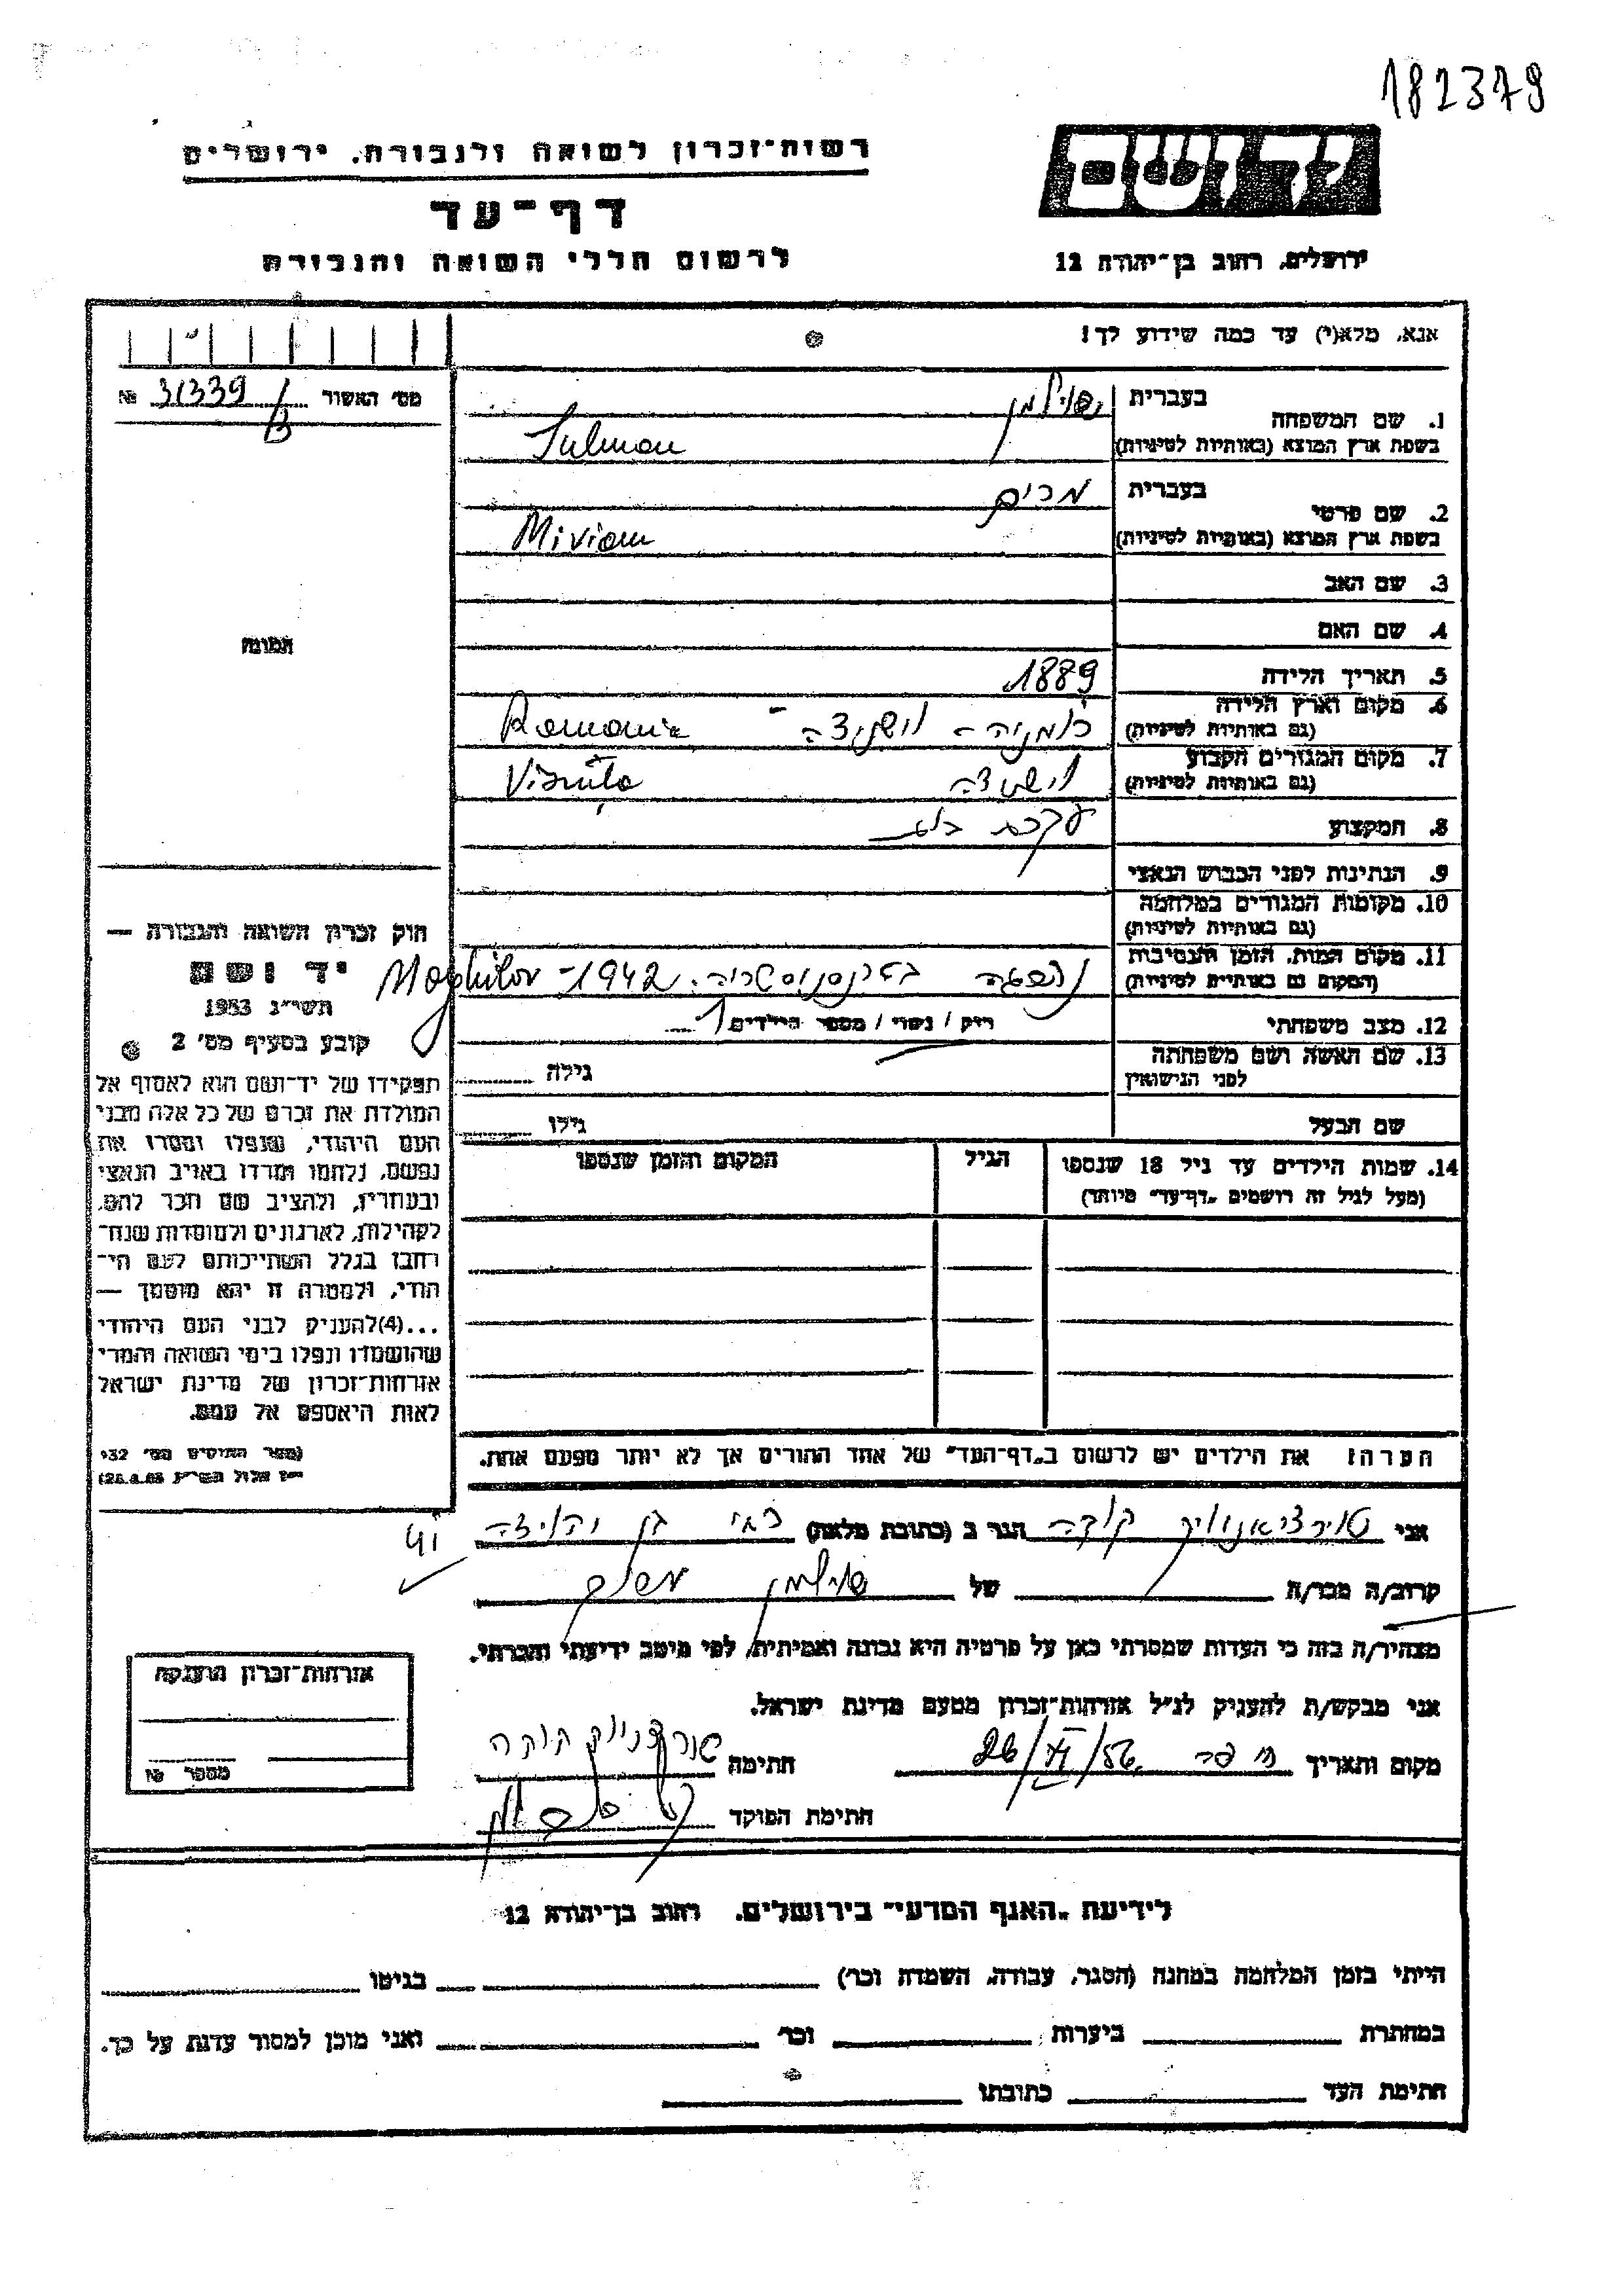 182379
יד ושם
רשות־זכרון לשואה ולגבורה, ירושלים
דף־עד
ירושלים, רחוב בן־יהודה 12
לרשום חללי השואה והגבורה
אנא, מלא(י) עד כמה שידוע לך!
מס׳ האשור 31339/B №
התמונה
1. שם המשפחה
בעברית שולמן
בשפת ארץ המוצא (באותיות לטיניות) Sulman
2. שם פרטי
בעברית מרים
בשפת ארץ המוצא (באותיות לטיניות) Miriam
3. שם האב
4. שם האם
5. תאריך הלידה 1889
6. מקום וארץ הלידה
(גם באותיות לטיניות) רומניה - וישניצה - Romania
7. מקום המגורים הקבוע
(גם באותיות לטיניות) וישניצה Visnita
8. המקצוע עקרת בית
9. הנתינות לפני הכבוש הנאצי
10. מקומות המגורים במלחמה
(גם באותיות לטיניות)
11. מקום המות, הזמן והנסיבות
(המקום גם באותיות לטיניות) נספתה בטרנסניסטריה. 1942 - Moghilov
12. מצב משפחתי רוק / נשוי / מספר הילדים 1
13. שם האשה ושם משפחתה
לפני הנישואין גילה
שם הבעל גילו
14. שמות הילדים עד גיל 18 שנספו
(מעל לגיל זה רושמים „דף־עד” מיוחד)
הגיל
המקום והזמן שנספו
הערה: את הילדים יש לרשום ב„דף־העד” של אחד ההורים אך לא יותר מפעם אחת.
חוק זכרון השואה והגבורה —
יד ושם
תשי״ג 1953
קובע בסעיף מס׳ 2
תפקידו של יד־ושם הוא לאסוף אל
המולדת את זכרם של כל אלה מבני
העם היהודי, שנפלו ומסרו את
נפשם, נלחמו ומרדו באויב הנאצי
ובעוזריו, ולהציב שם וזכר להם,
לקהילות, לארגונים ולמוסדות שנח־
רבו בגלל השתייכותם לעם הי־
הודי, ולמטרה זו יהא מוסמך —
...(4)להעניק לבני העם היהודי
שהושמדו ונפלו בימי השואה והמרי
אזרחות־זכרון של מדינת ישראל
לאות היאספם אל עמם.
(ספר החוקים מס׳ 132
אני קוקה הגר ב (כתובת מלאה)
קרוב/ה מכר/ה של שולמן
מצהיר/ה בזה כי העדות שמסרתי כאן על פרטיה היא נכונה ואמיתית, לפי מיטב ידיעתי והכרתי.
אני מבקש/ת להעניק לנ״ל אזרחות־זכרון מטעם מדינת ישראל.
מקום ותאריך חיפה 26/VI/56 חתימה
חתימת הפוקד
אזרחות־זכרון מוענקה
מספר №
לידיעת „האגף המדעי” בירושלים, רחוב בן־יהודה 12
הייתי בזמן המלחמה במחנה (הסגר, עבודה, השמדה וכר׳) בגיטו
במחתרת ביערות וכר׳ ואני מוכן למסור עדות על כך.
חתימת העד כתובתו